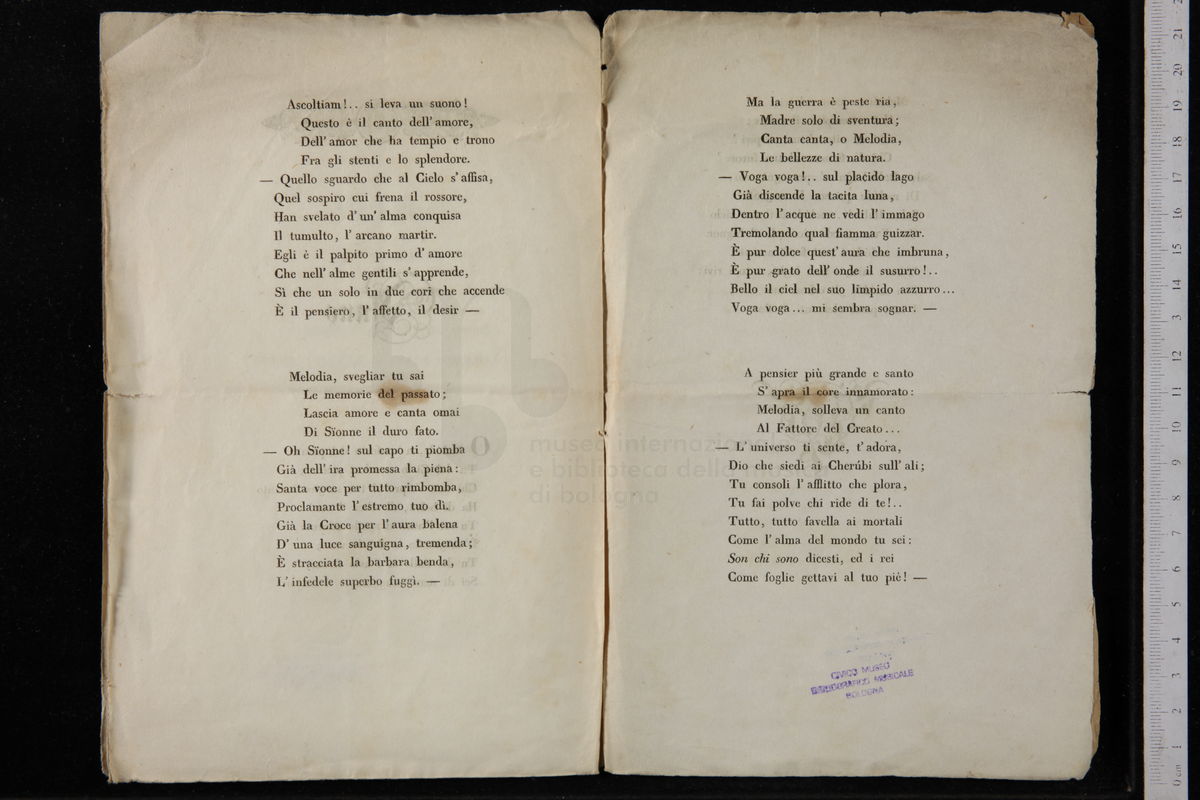 Ascoltiam!.. si leva un suono!
Questo è il canto dell' amore,
Dell' amor che ha tempio e trono
Fra gli stenti e lo splendore.
— Quello sguardo che al Cielo s' affisa,
Quel sospiro cui frena il rossore,
Han svelato d' un' alma conquisa
Il tumulto, l' arcano martir.
Egli è il palpito primo d' amore
Che nell' alme gentili s' apprende,
Sì che un solo in due cori che accende
È il pensiero, l' affetto, il desir —
Melodia, svegliar tu sai
Le memorie del passato;
Lascia amore e canta omai
Di Sïonne il duro fato.
— Oh Sïonne! sul capo ti piomba
Già dell' ira promessa la piena:
Santa voce per tutto rimbomba,
Proclamante l' estremo tuo dì.
Già la Croce per l' aura balena
D' una luce sanguigna, tremenda;
È stracciata la barbara benda,
L' infedele superbo fuggì. —
Ma la guerra è peste ria,
Madre solo di sventura;
Canta canta, o Melodia,
Le bellezze di natura.
— Voga voga!.. sul placido lago
Già discende la tacita luna,
Dentro l' acque ne vedi l' immago
Tremolando qual fiamma guizzar.
È pur dolce quest' aura che imbruna,
È pur grato dell' onde il susurro!..
Bello il ciel nel suo limpido azzurro...
Voga voga... mi sembra sognar. —
A pensier più grande e santo
S' apra il core innamorato:
Melodia, solleva un canto
Al Fattore del Creato...
— L' universo ti sente, t' adora,
Dio che siedi ai Cherúbi sull' ali;
Tu consoli l' afflitto che plora,
Tu fai polve chi ride di te!..
Tutto, tutto favella ai mortali
Come l' alma del mondo tu sei:
Son chi sono dicesti, ed i rei
Come foglie gettavi al tuo piè! —
CIVICO MUSEO
BIBLIOGRAFICO MUSICALE
BOLOGNA
museo internazionale
e biblioteca della musica
di bologna
0 cm 1 2 3 4 5 6 7 8 9 10 11 12 13 14 15 16 17 18 19 20 21